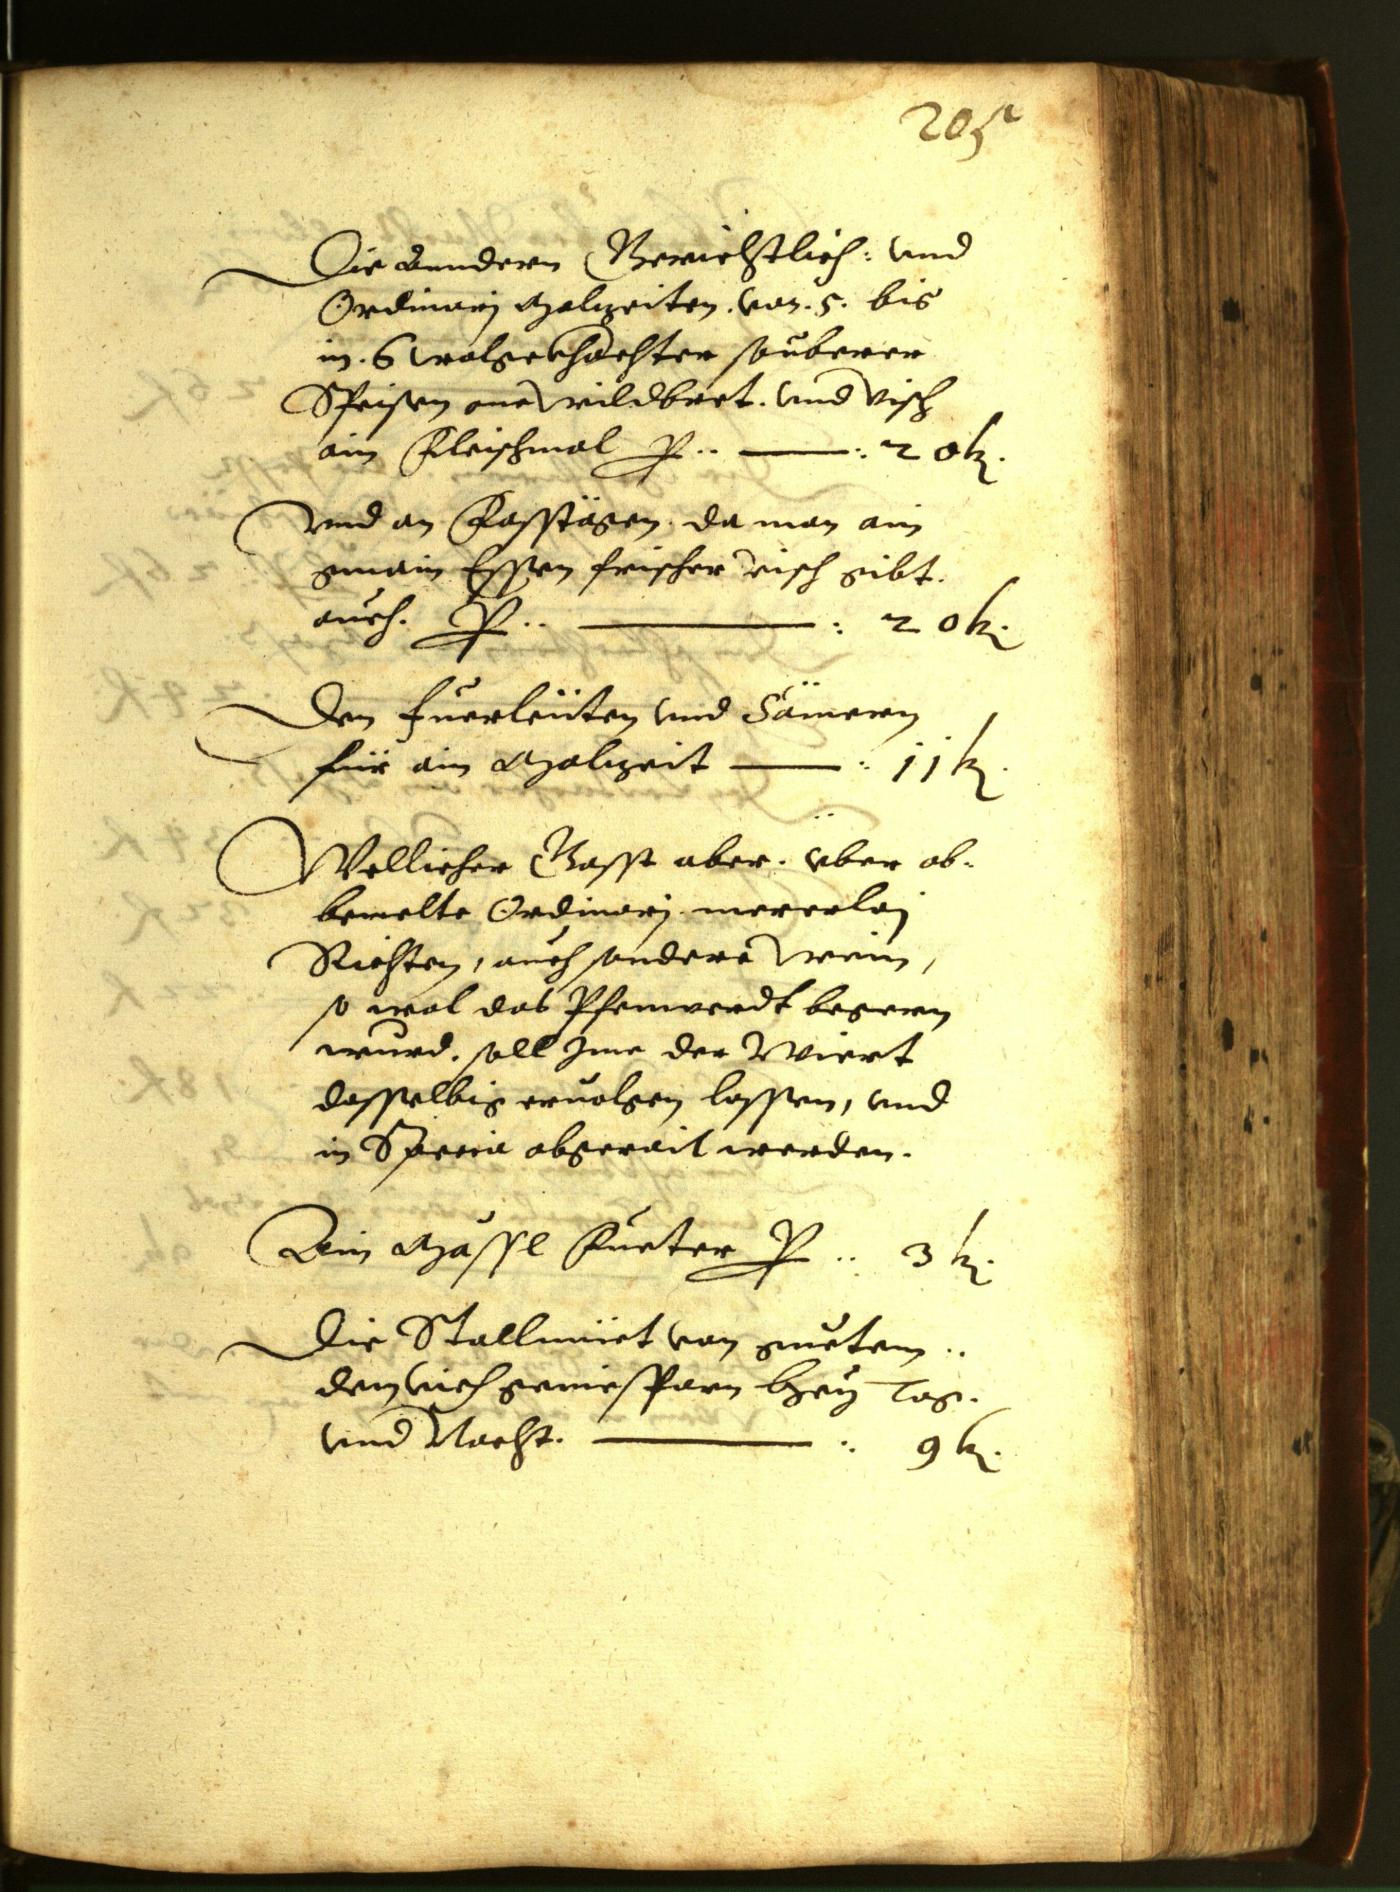 205
Die anndern Gerichtlich: vnd
Ordinarj Malzeiten. von. 5. bis
in. 6 wolgekhochter sauberer
Speisen one wildbret. vnd visch
ain Fleischmal P .. —— : 20 k.
vnd an Fasstägen. da man ain
gmain Essen frischer visch gibt.
auch. P .. —— : 20 k.
Den Fuerleüten vnd Sämern
für ain Malzeit —— : 11 k.
Wellicher Gasst aber. über ob-
bemelte Ordinarj mererlaj
Richten, auch sondere wein,
so wol das Pfenwerdt begern
wurd. soll Ime der Wiert
dasselbig eruolgen lassen, vnd
in Specia abgerait werden.
Ain Mässl Fueter P .. 3 k.
Die Stallmüet von guetem ..
dem vich Tag.
vnd Nacht. —— : 9 k.